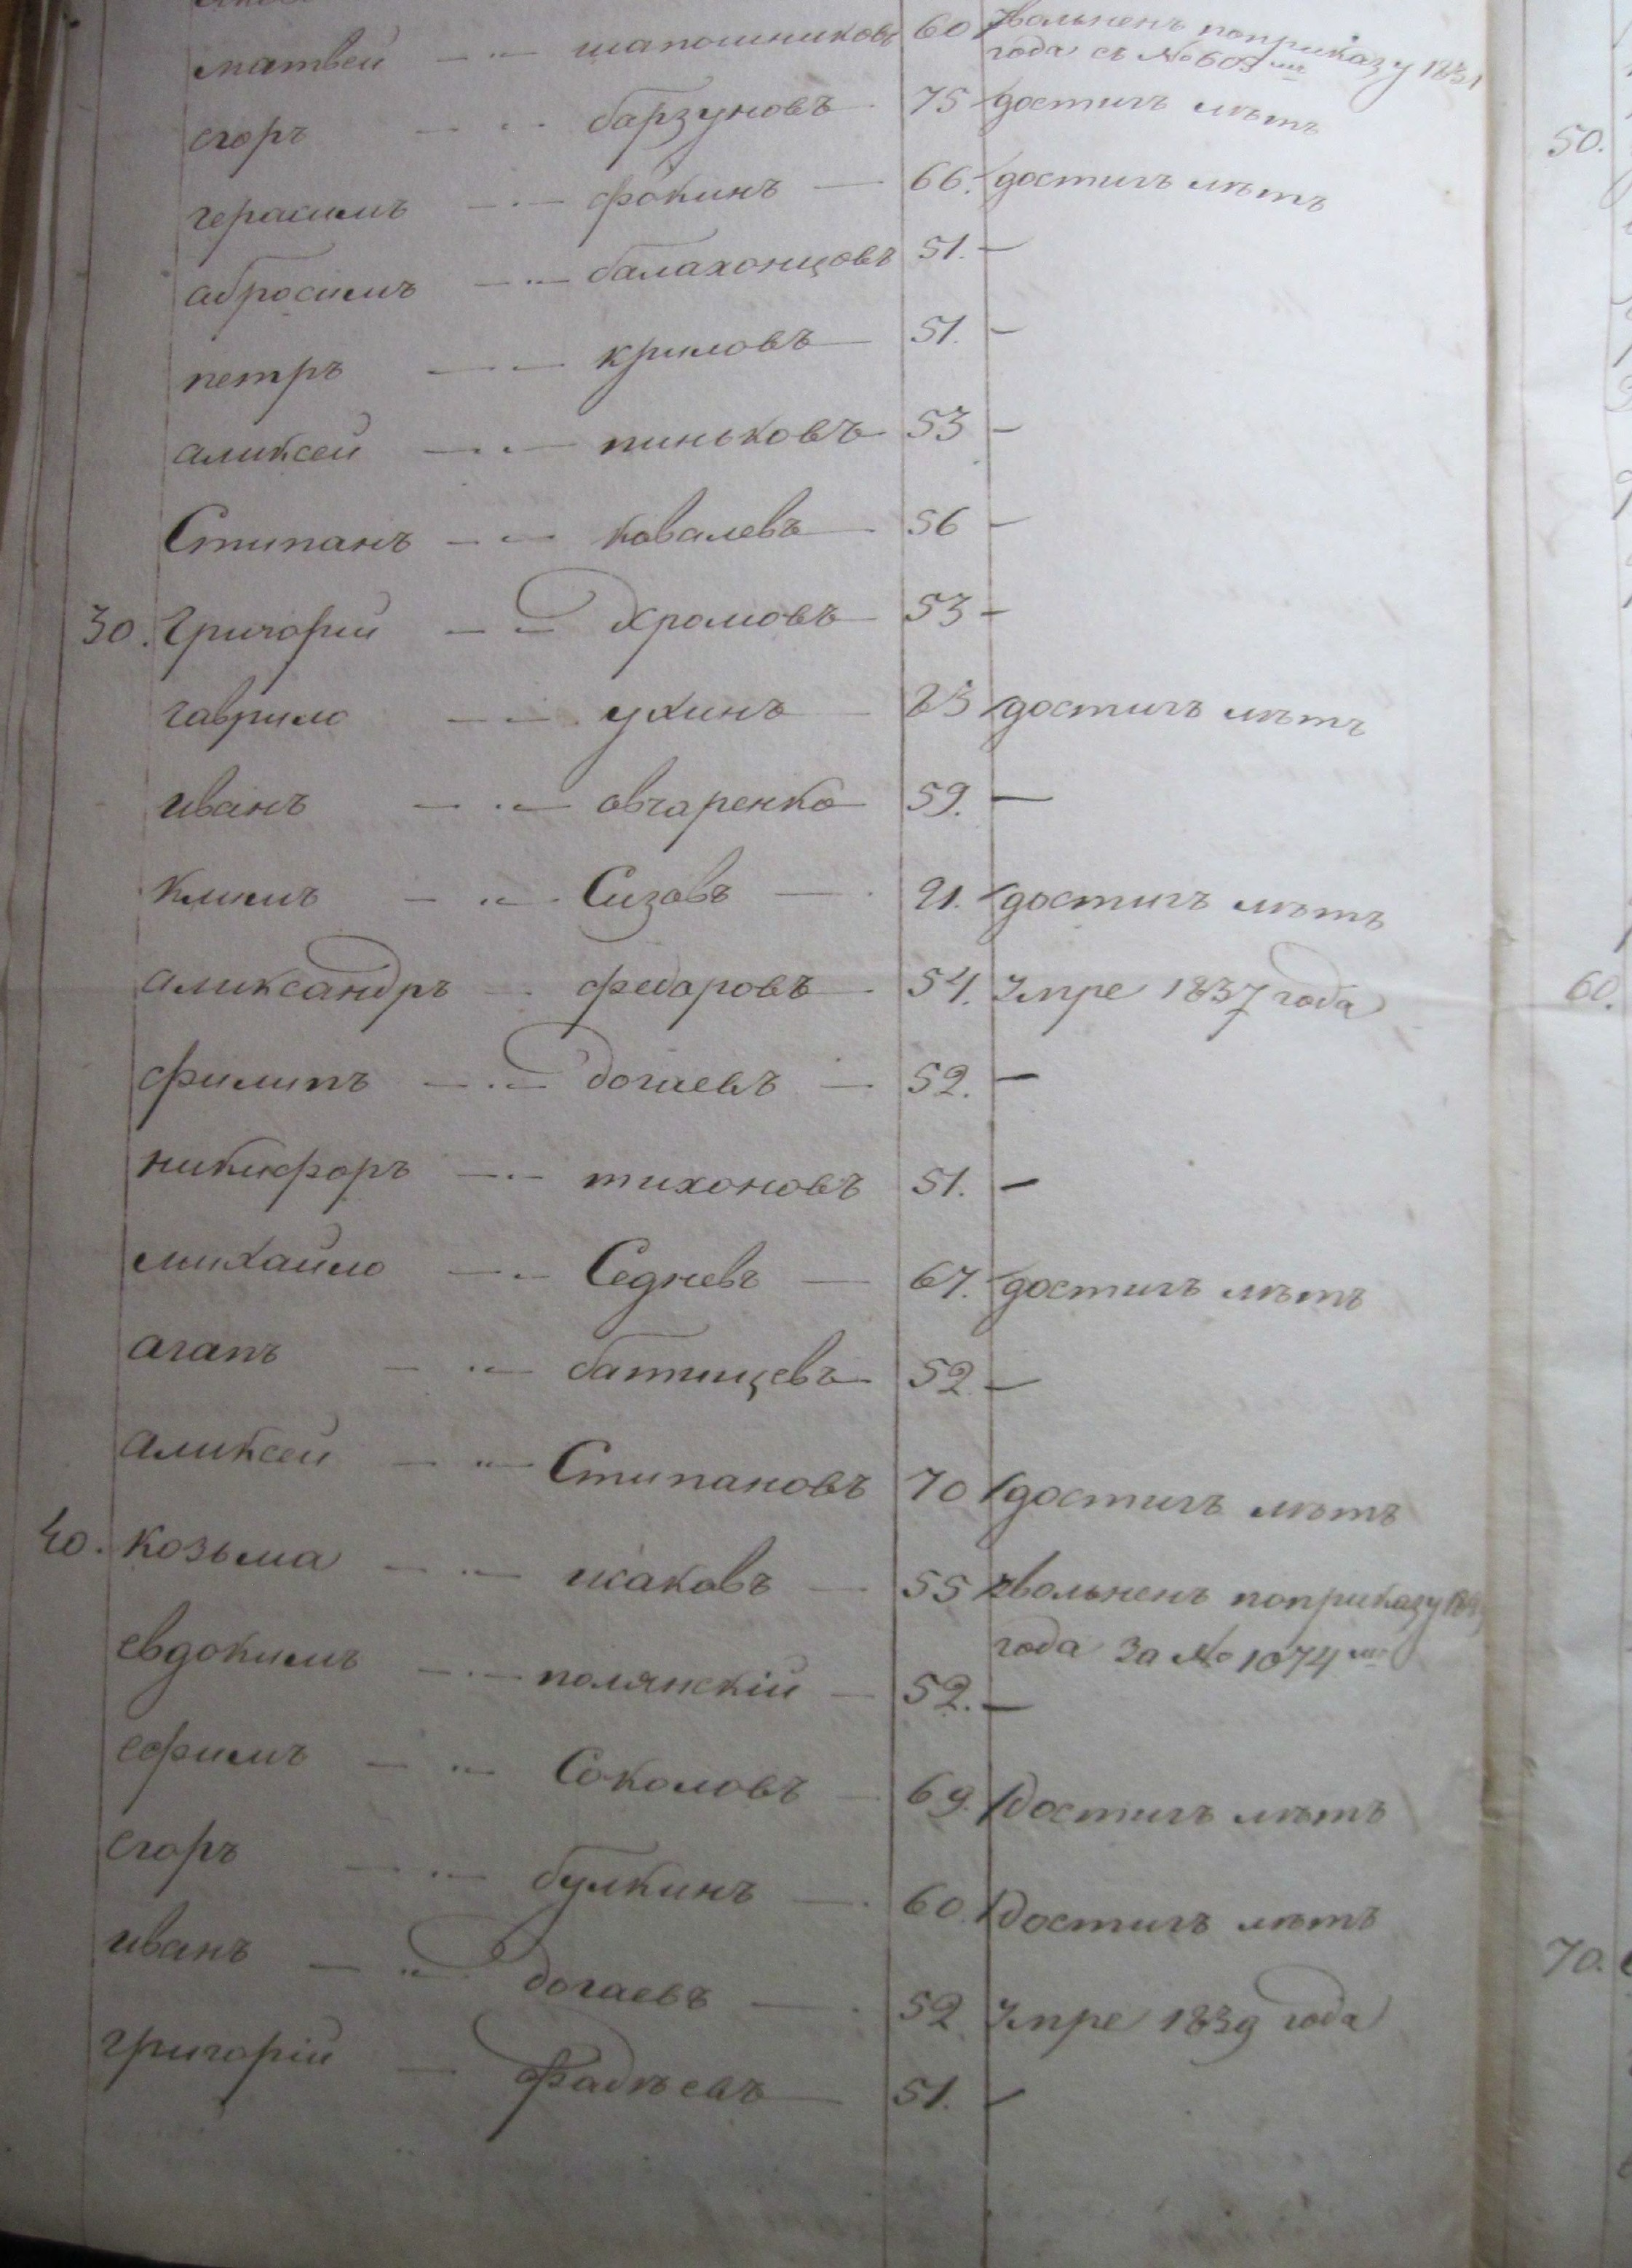 матвей шапошниковъ 60 Увольненъ поприказу 1831
года съ № 603 мъ
егоръ барзуновъ 75 достигъ летъ
герасимъ фокинъ 66. достигъ летъ
абросимъ балахонцовъ 51. —
петръ криловъ 51. —
аликсей пиньковъ 53 —
Стипанъ ковалевъ 56 —
30. Григорий Хромовъ 53 —
гаврило ухинъ 83 достигъ летъ
иванъ овчаренко 59. —
климъ Сизовъ 91. достигъ летъ
аликсандръ федаровъ 54. Умре 1837 года
филипъ догаевъ 52. —
никифоръ тихоновъ 51. —
михайло Седневъ 67. достигъ летъ
агапъ батищевъ 52. —
аликсей Стипановъ 70 достигъ летъ
40. козьма жаковъ 55 Увольненъ поприказу
года За № 1074 мъ
евдокимъ полянскій 52. —
ефимъ Соколовъ 69. Достигъ летъ
егоръ булкинъ 60. Достигъ летъ
иванъ догаевъ 52 Умре 1839 года
григорій Фадѣевъ 51. —
50.
60.
70.